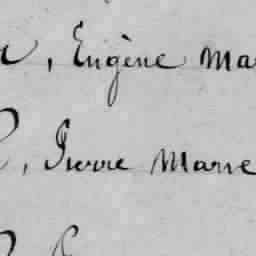 , Eugène Ma
, Pierre Marie